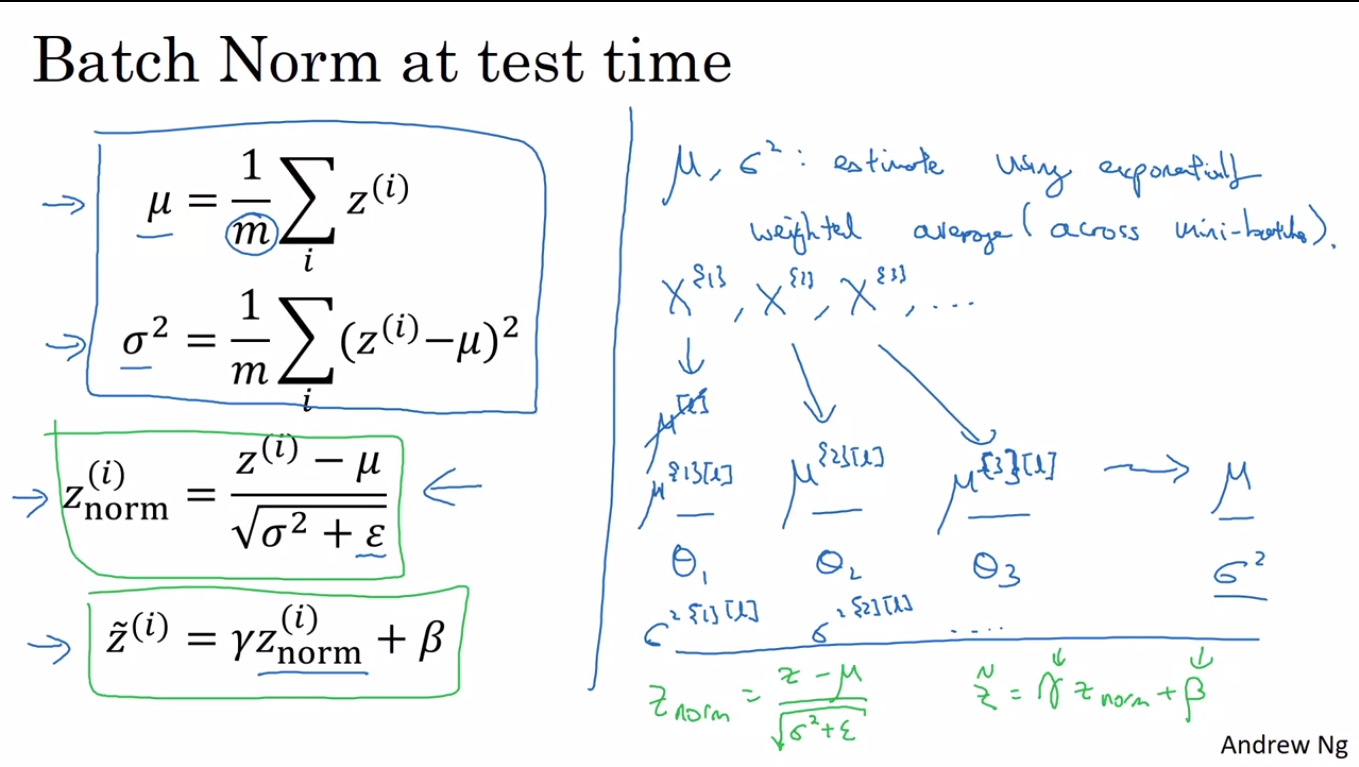 Batch Norm at test time
→ μ = 1/m ∑_i z^(i)
→ σ² = 1/m ∑_i (z^(i) − μ)²
→ z_norm^(i) = (z^(i) − μ) / √(σ² + ε) ←
→ z̃^(i) = γ z_norm^(i) + β
μ, σ² : estimate using exponentially
weighted average (across mini-batches).
X^{1}, X^{2}, X^{3}, ...
μ^[l]
μ^{1}[l] μ^{2}[l] μ^{3}[l] → μ
θ₁ θ₂ θ₃ σ²
σ²^{1}[l] σ²^{2}[l] ....
z_norm = (z − μ) / √(σ² + ε) z̃ = γ z_norm + β
Andrew Ng